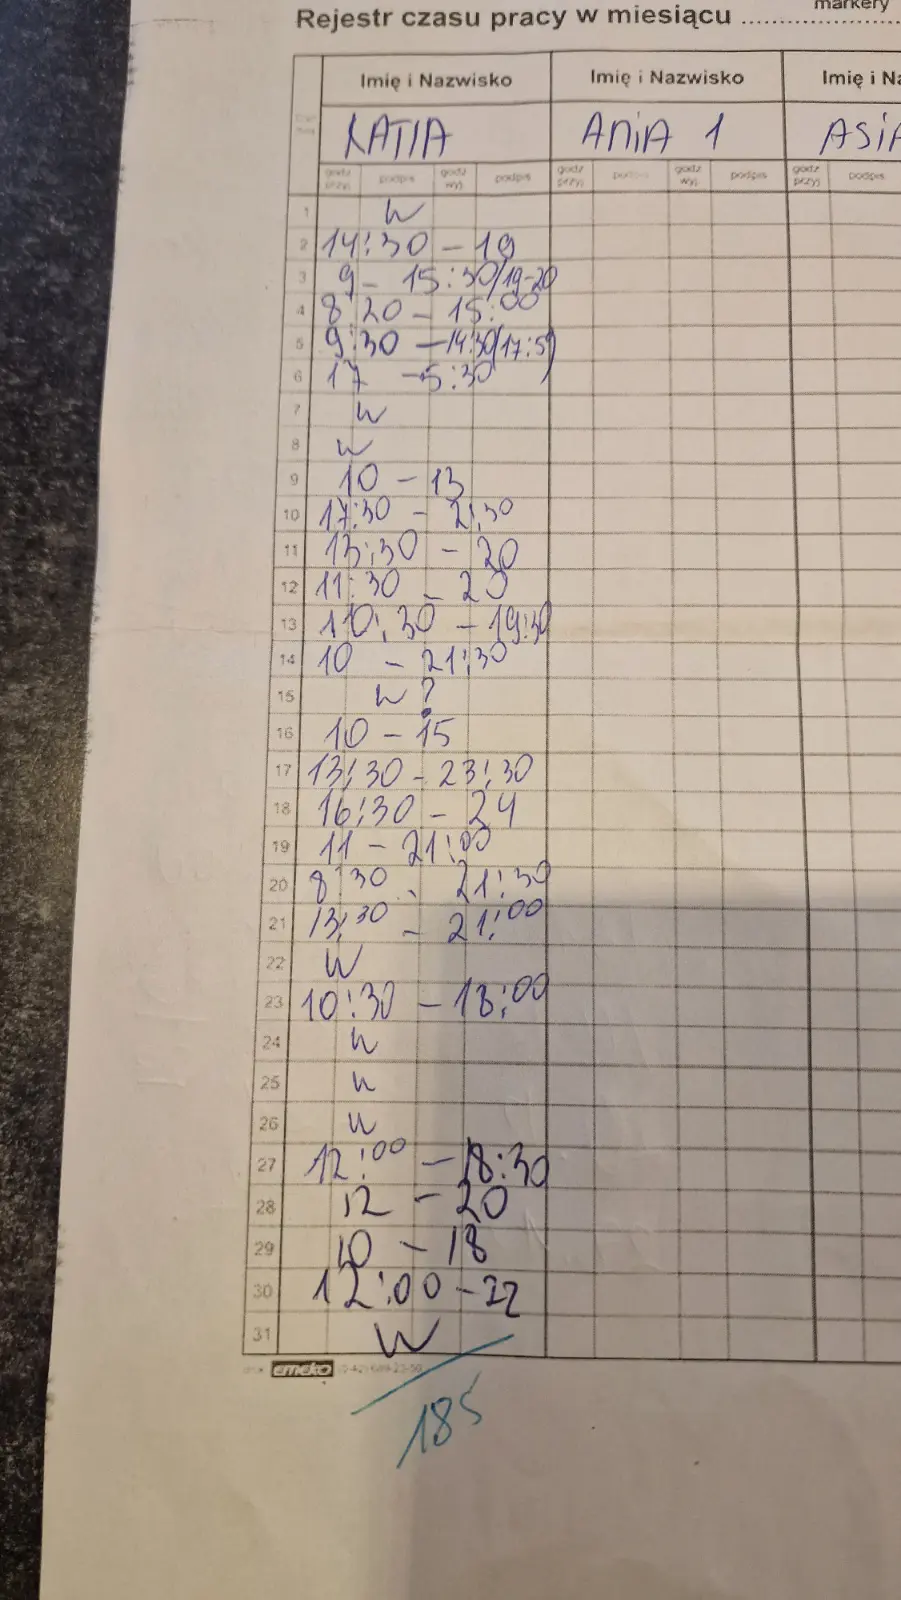 markery
Rejestr czasu pracy w miesiącu
Imię i Nazwisko Imię i Nazwisko Imię i Na
KATIA ANIA 1 ASIA
godz przyj podpis godz wyj podpis godz przyj podpis godz wyj podpis godz przyj podpis
1 W
2 14:30 - 19
3 9 - 15:30/19-20
4 8:20 - 15:00
5 9:30 - 14:30
6 17 - 5:30
7 W
8 W
9 10 - 13
10 17:30 - 21:30
11 13:30 - 20
12 11:30 - 20
13 110:30 - 19:30
14 10 - 21:30
15 W ?
16 10 - 15
17 13:30 - 23:30
18 16:30 - 24
19 11 - 21:00
20 8:30 - 21:30
21 13:30 - 21:00
22 W
23 10:30 - 18:00
24 W
25 W
26 W
27 12:00 - 18:30
28 12 - 20
29 10 - 18
30 12:00 - 22
31 W
emeko
185